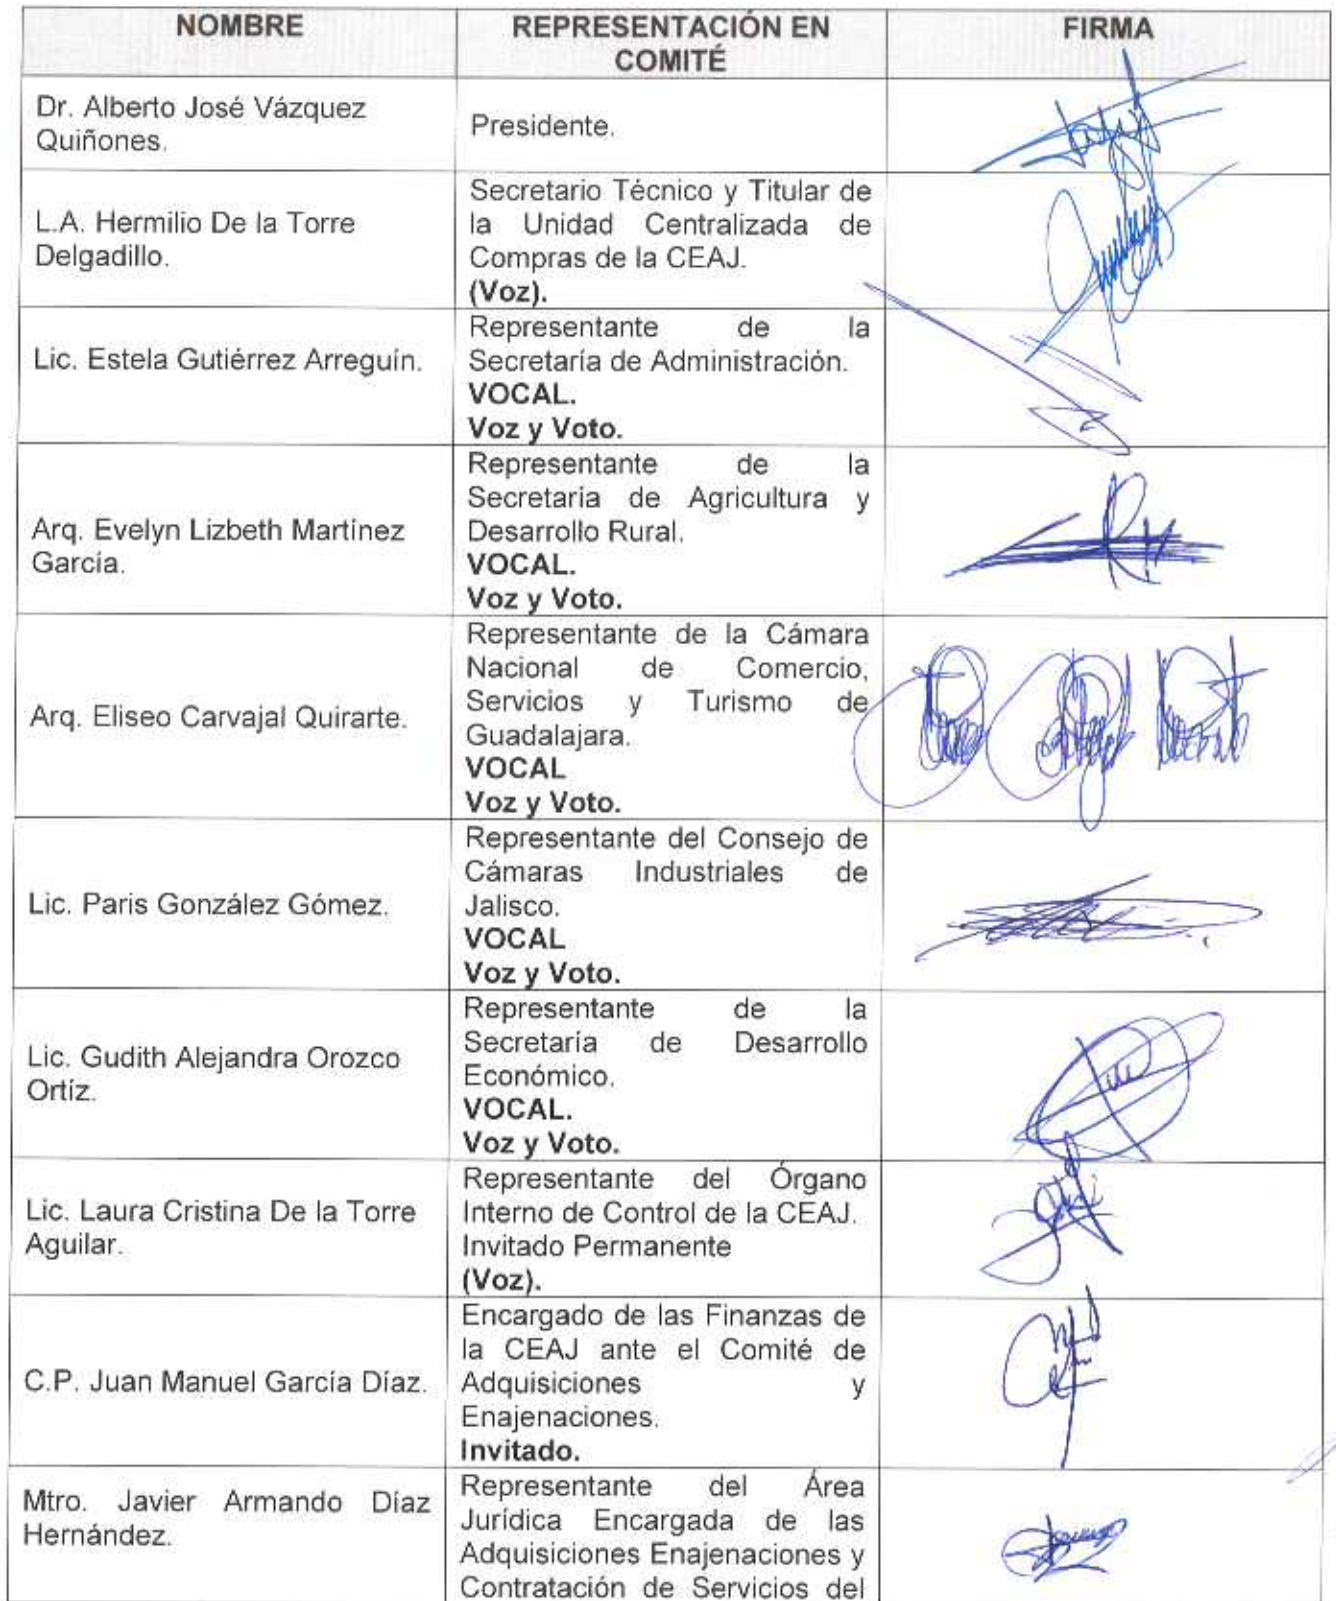 NOMBRE
REPRESENTACIÓN EN
COMITÉ
FIRMA
Dr. Alberto José Vázquez
Quiñones.
Presidente.
L.A. Hermilio De la Torre
Delgadillo.
Secretario Técnico y Titular de
la Unidad Centralizada de
Compras de la CEAJ.
(Voz).
Lic. Estela Gutiérrez Arreguín.
Representante de la
Secretaría de Administración.
VOCAL.
Voz y Voto.
Arq. Evelyn Lizbeth Martínez
García.
Representante de la
Secretaria de Agricultura y
Desarrollo Rural.
VOCAL.
Voz y Voto.
Arq. Eliseo Carvajal Quirarte.
Representante de la Cámara
Nacional de Comercio,
Servicios y Turismo de
Guadalajara.
VOCAL
Voz y Voto.
Lic. Paris González Gómez.
Representante del Consejo de
Cámaras Industriales de
Jalisco.
VOCAL
Voz y Voto.
Lic. Gudith Alejandra Orozco
Ortíz.
Representante de la
Secretaría de Desarrollo
Económico.
VOCAL.
Voz y Voto.
Lic. Laura Cristina De la Torre
Aguilar.
Representante del Órgano
Interno de Control de la CEAJ.
Invitado Permanente
(Voz).
C.P. Juan Manuel García Díaz.
Encargado de las Finanzas de
la CEAJ ante el Comité de
Adquisiciones y
Enajenaciones.
Invitado.
Mtro. Javier Armando Díaz
Hernández.
Representante del Área
Jurídica Encargada de las
Adquisiciones Enajenaciones y
Contratación de Servicios del